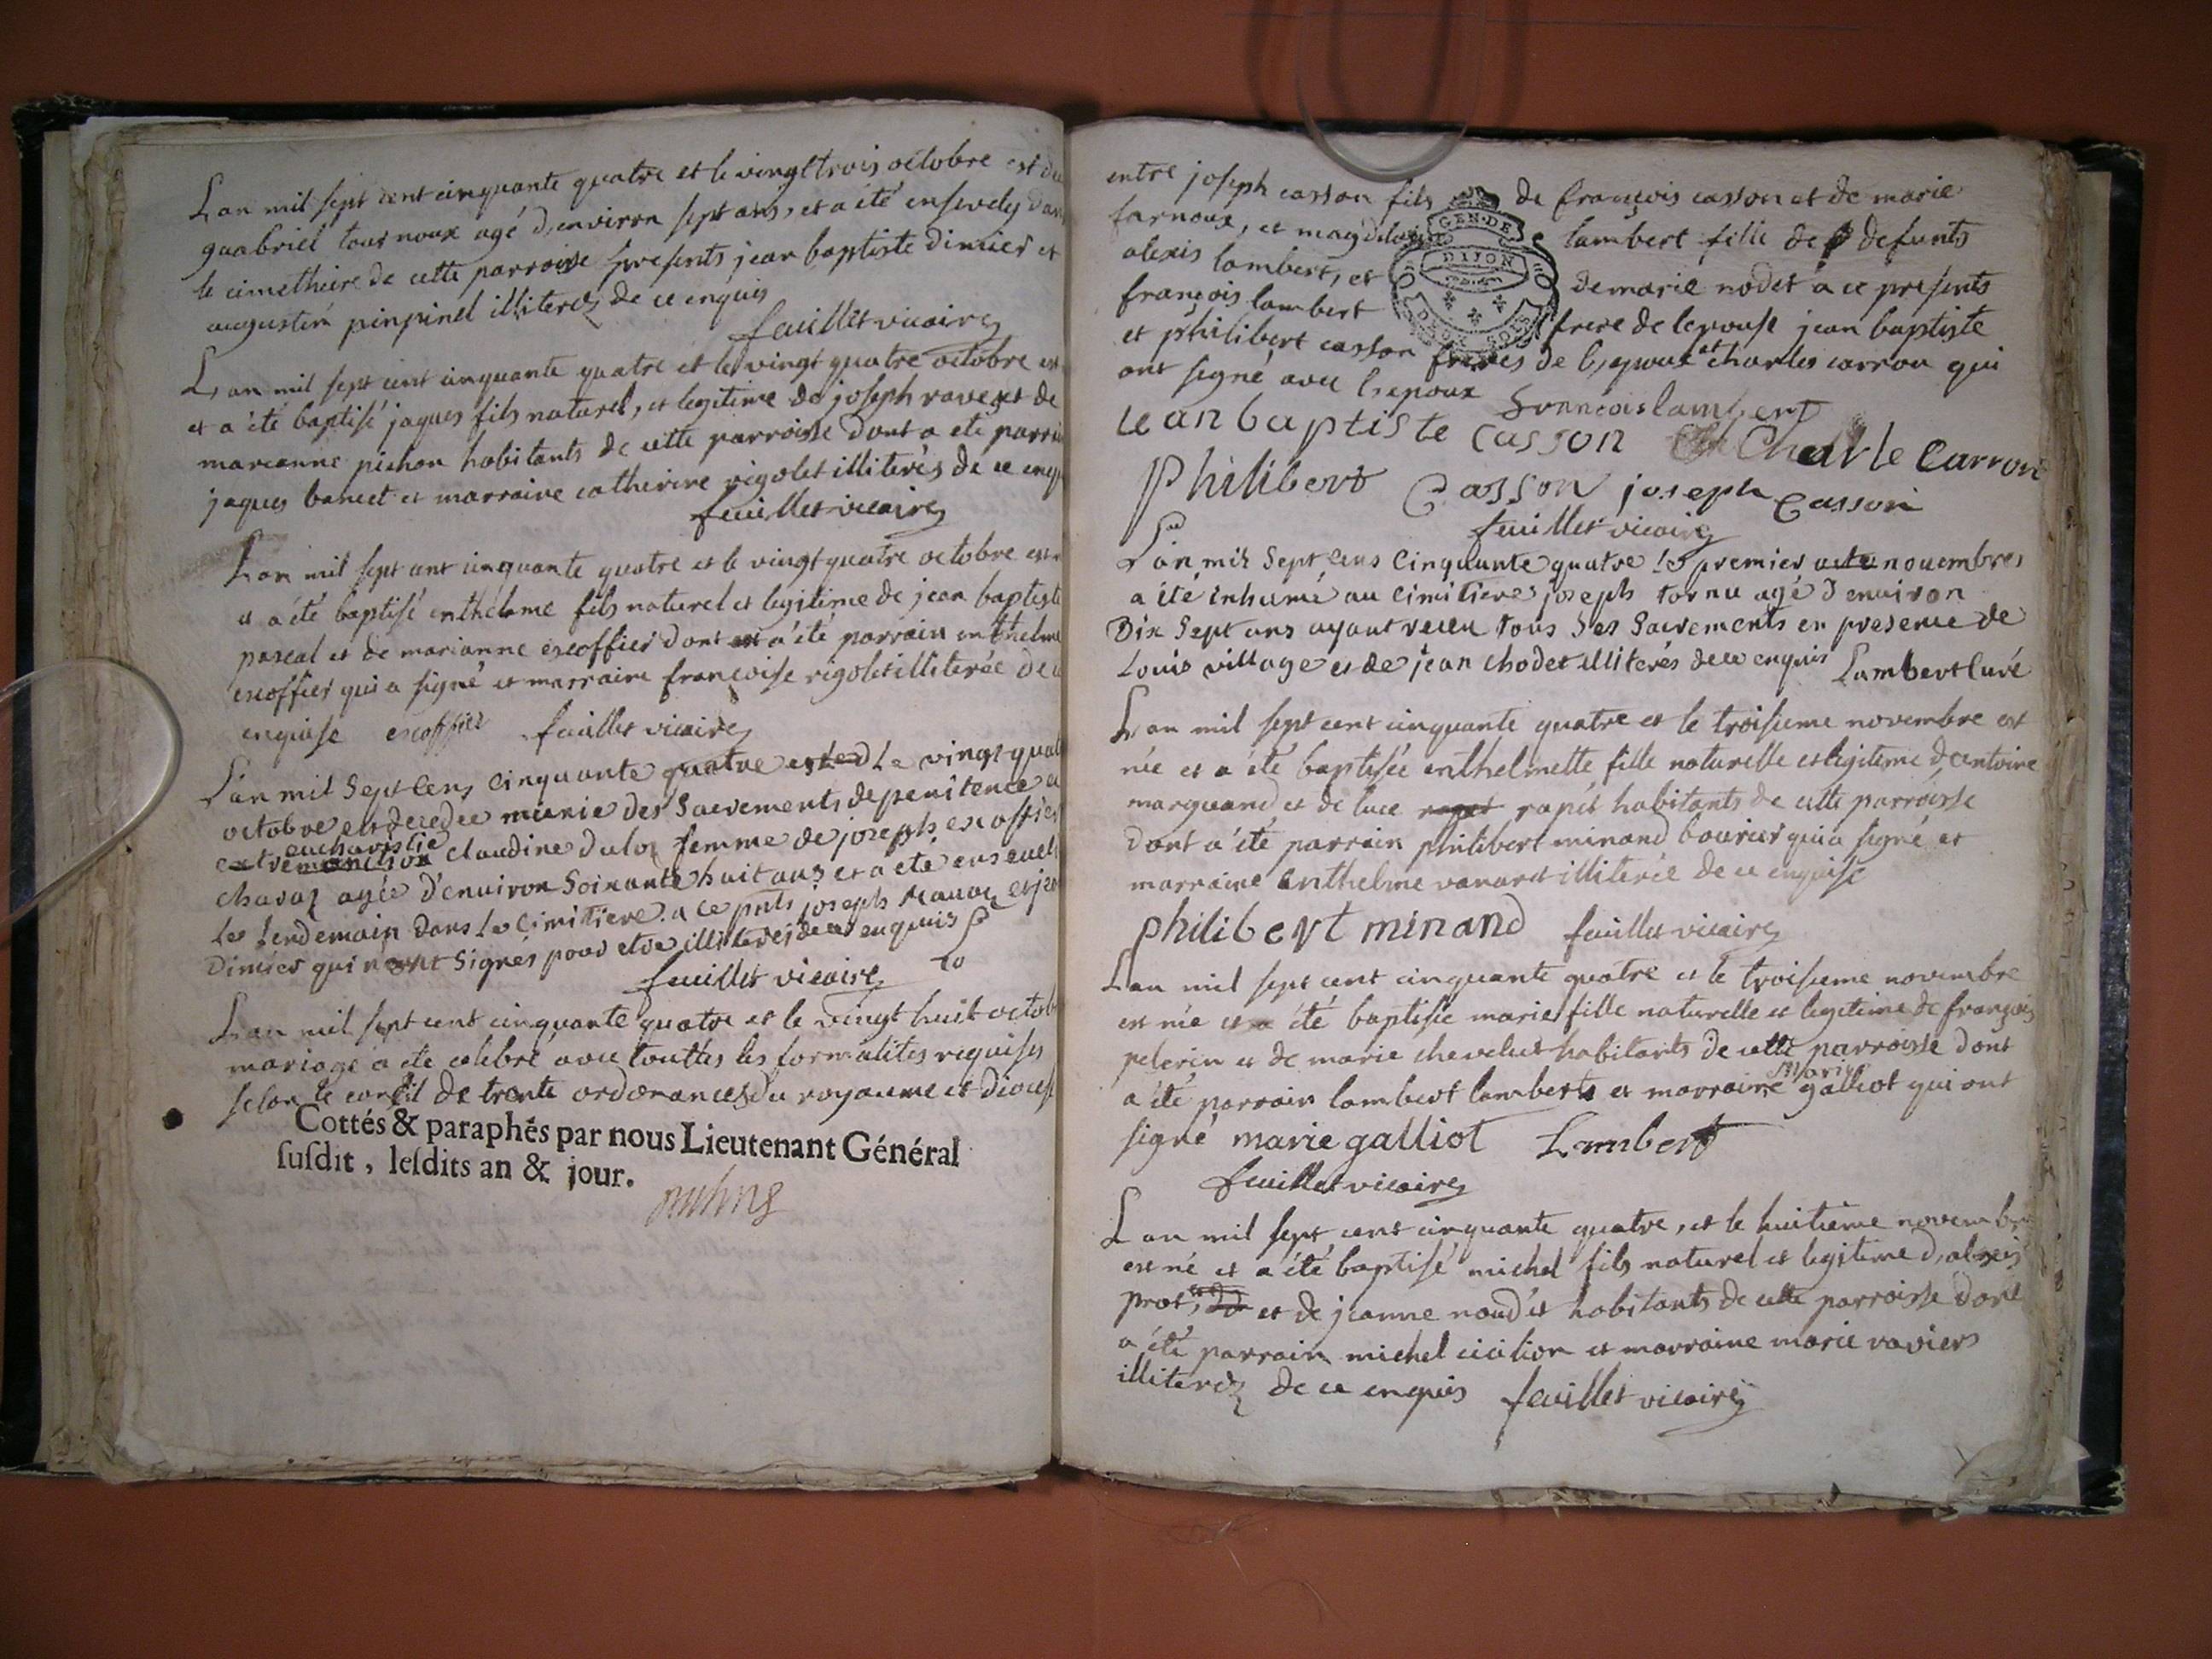 Lan mil sept cent cinquante quatre et le vingt trois octobre est
guabriel tournoux agé d'environ sept ans, et a été ensevely dans
le cimethiere de cette parroisse presents jean baptiste dimier et
augustin pinpinel illiterez de ce enquis
feuillet vicaire
Lan mil sept cent cinquante quatre et le vingt quatre octobre est
et a été baptisé jaques fils naturel, et legitime de joseph ravex et de
marianne pichon habitants de cette parroisse dont a eté parrain
jaques bancet et marraine catherine rigolet illiterés de ce enquis
feuillet vicaire
Lan mil sept cent cinquante quatre et le vingt quatre octobre est
et a été baptisé enthelme fils naturel et legitime de jean baptiste
pascal et de marianne escoffier dont a été parrain enthelme
escoffier qui a signé et marraine francoise rigolet illiterée de
enquise escoffier feuillet vicaire
Lan mil Sept Cens Cinquante quatre et Le vingt quat
octobre est decedee munie des Sacrements de penitence
eucharistie
extremonction Claudine dulos femme de joseph escoffier
chavaz agée d'environ Soixante huit ans et a eté ensevel
Le Lendemain dans Le Cimitiere a ce pnts joseph
Dimier qui n'ont Signés pour etre illiterés de ce enquis
feuillet vicaire
Lan mil sept cent cinquante quatre et le vingt huit octob
mariage a eté celebré avec touttes les formalites requises
selon le concil de trente ordonnances du royaume et diocese
Cottés & paraphés par nous Lieutenant Général
susdit, lesdits an & jour.
entre joseph casson fils de françois casson et de marie
farnoux, et magdelaine lambert fille de defunts
alexis lambert, et de marie nodet a ce presents
françois lambert frere de lepouse jean baptiste
et philibert casson freres de l'epoux et charles carron qui
ont signé avec l'epoux francois lambert
Jean baptiste Casson Charle Carron
Philibert Casson joseph Casson
feuillet vicaire
Lan mil Sept Cens Cinquante quatre Le premier novembre
a ité inhumé au Cimitiere joseph tornu agé d'environ
Dix Sept ans ayant receu tous Ses Sacrements en presence de
Louis village et de jean chodet illiterés de ce enquis Lambert Curé
Lan mil sept cent cinquante quatre et le troisieme novembre est
née et a été baptisée enthelmette fille naturelle et legitime d'antoine
marguand et de luce rapet habitants de cette parroisse
dont a été parrain philibert minand bourier qui a signé et
marraine enthelme vanaret illiterée de ce enquise
philibert minand feuillet vicaire
Lan mil sept cent cinquante quatre et le troisieme novembre
est née et a été baptisée marie fille naturelle et legitime de françois
pelerin et de marie chevelut habitants de cette parroisse dont
a été parrain lambert lambert et marraine marie galliot qui ont
signé marie galliot Lambert
feuillet vicaire
Lan mil sept cent cinquante quatre, et le huitieme novembre
est né et a été baptisé michel fils naturel et legitime d'alexis
prot, et de jeanne noudet habitants de cette parroisse dont
a été parrain michel cicition et marraine marie raviers
illiterez de ce enquis feuillet vicaire
GEN·DE
DIJON